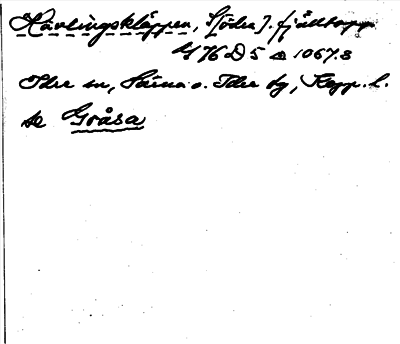 Hävlingskläppen, S[ödra]. fjälltopp
4476 D5 △ 1067.8
Idre sn, Särna o. Idre tg, Kopp. l.
se Gråsa